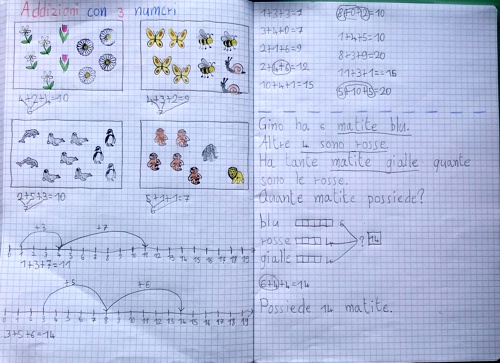 Addizioni con 3 numeri
4+2+4=10
4+3+2=9
2+5+3=10
5+1+1=7
+3 +7
0 1 2 3 4 5 6 7 8 9 10 11 12 13 14 15 16 17 18 19
1+3+7=11
+5 +6
0 1 2 3 4 5 6 7 8 9 10 11 12 13 14 15 16 17 18 19
3+5+6=14
1+3+3=7
3+4+0=7
2+1+6=9
2+4+6=12
10+4+1=15
8+0+2=10
1+4+5=10
8+3+9=20
11+3+1=15
5+10+5=20
Gino ha 6 matite blu.
Altre 4 sono rosse.
Ha tante matite gialle quante
sono le rosse.
Quante matite possiede?
blu 6
rosse 4 ? 14
gialle 4
6+4+4=14
Possiede 14 matite.